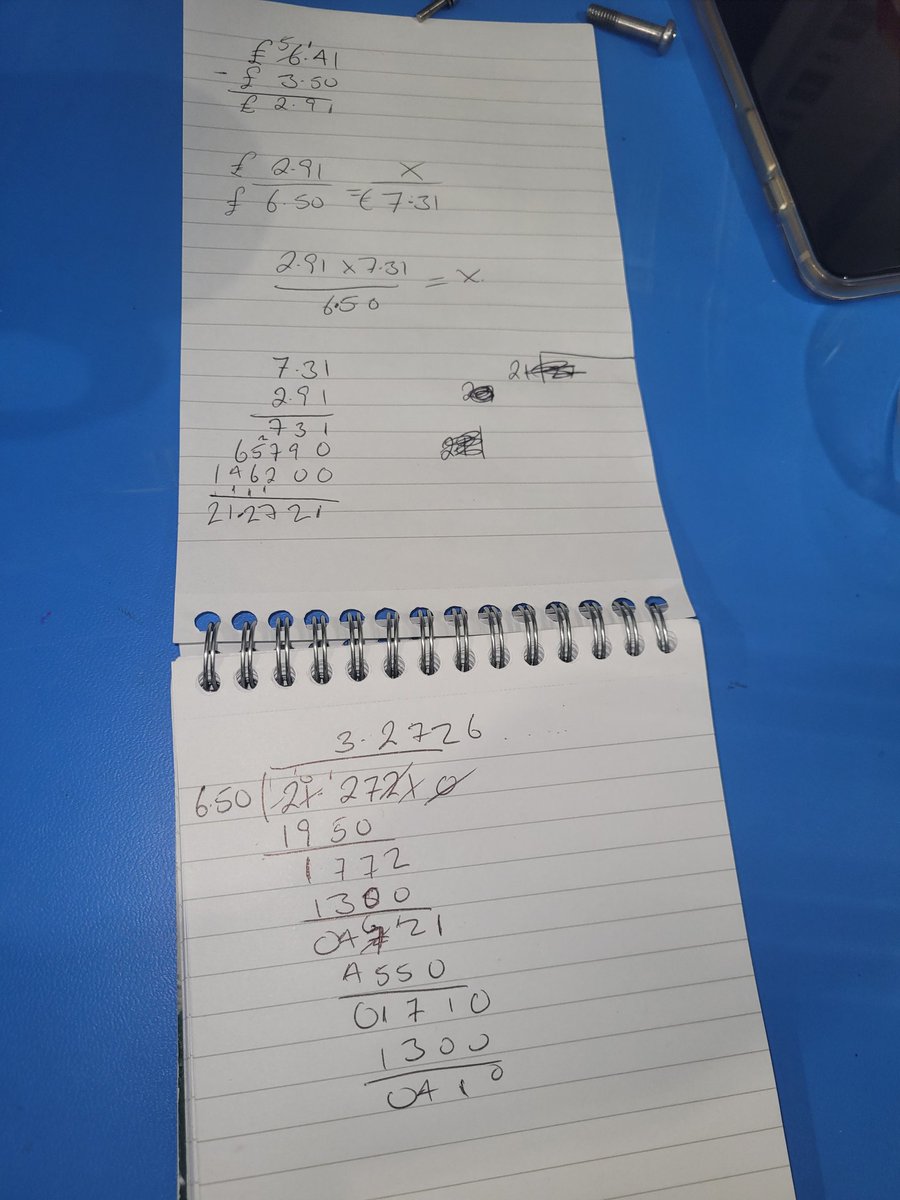 £ 6.41
- £ 3.50
£ 2.91
£ 2.91 = X
£ 6.50 € 7.31
2.91 x 7.31 = X
6.50
7.31
2.91
731
65790
146200
21.2721
21
3.2726.....
6.50 21.2721 0
1950
1772
1300
04721
4550
01710
1300
0410